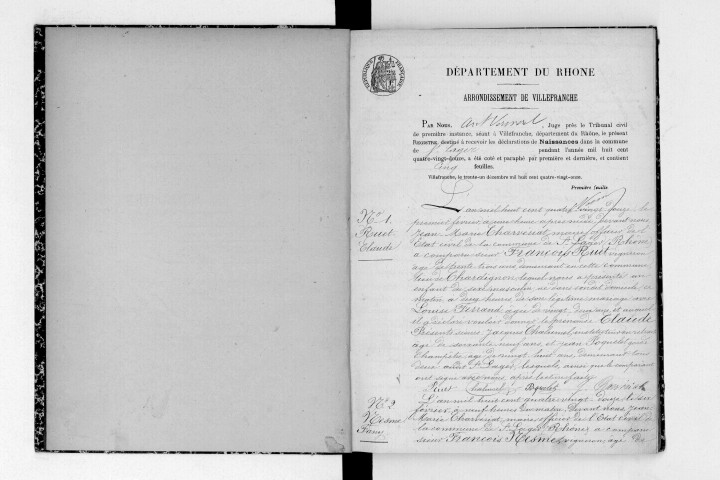 RÉPUBLIQUE FRANÇAISE
DÉPARTEMENT DU RHONE
ARRONDISSEMENT DE VILLEFRANCHE
PAR NOUS, Juge près le Tribunal civil
de première instance, séant à Villefranche, département du Rhône, le présent
REGISTRE, destiné à recevoir les déclarations de Naissances dans la commune
de St Lager pendant l'année mil huit cent
quatre-vingt-douze, a été coté et paraphé par première et dernière, et contient
cinq feuilles.
Villefranche, le trente-un décembre mil huit cent quatre-vingt-onze.
Première feuille
No 1.
Ruet
Claude
L'an mil huit cent quatre vingt douze le
premier février à une heure après midi, devant nous
Jean Marie Charvériat, maire officier de l'
Etat civil de la commune de St Lager, Rhône
a comparu sieur François Ruet vigneron
âgé de trente trois ans demeurant en cette commune
lieu de Chardignon, lequel nous a présenté un
enfant de sexe masculin, né dans son dit domicile
à cinq heures de son légitime mariage avec
Louise Ferrand, âgée de vingt deux ans et auquel
il a déclaré vouloir donner le prénom de Claude
Présents sieurs Jacques instituteur en retraite
âgé de soixante neuf ans, et Jean Poquelet garde
Champêtre âgé de vingt huit ans, demeurant tous
deux audit St Lager, lesquels, ainsi que le comparant
ont signé avec nous, après lecture faite
Ruet Poquelet
No 2
Nesme
Fany
L'an mil huit cent quatre vingt douze le
février à neuf heures du matin, Devant nous Jean
Marie Charvériat, maire officier de l'Etat civil de
la commune de St Lager, Rhône, a comparu
sieur François Nesme, vigneron, âgé de